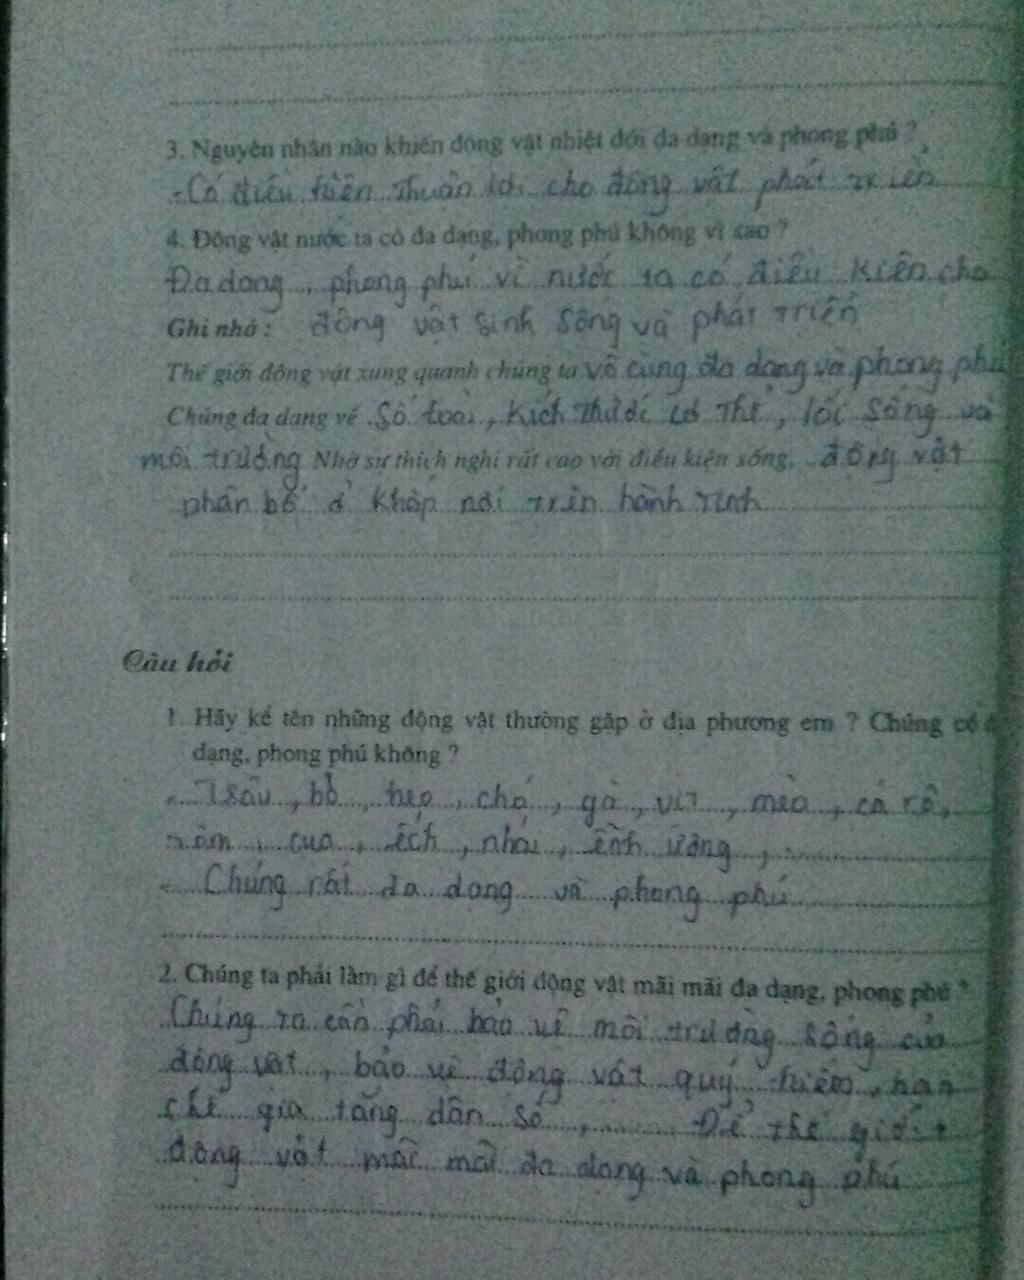 3. Nguyên nhân nào khiến động vật nhiệt đới đa dạng và phong phú ?
- Có điều kiện thuận lợi cho động vật phát triển
4. Động vật nước ta có đa dạng, phong phú không vì sao ?
Đa dạng, phong phú vì nước ta có điều kiện cho
Ghi nhớ : động vật sinh sống và phát triển
Thế giới động vật xung quanh chúng ta vô cùng đa dạng và phong phú
Chúng đa dạng về số loài, kích thước cơ thể, lối sống và
môi trường Nhờ sự thích nghi rất cao với điều kiện sống, động vật
phân bố ở khắp nơi trên hành tinh
Câu hỏi
1. Hãy kể tên những động vật thường gặp ở địa phương em ? Chúng có đ
dạng, phong phú không ?
- Trâu, bò, heo, chó, gà, vịt, mèo, cá rô,
tôm, cua, ếch, nhái, ễnh ương, ...
- Chúng rất đa dạng và phong phú
2. Chúng ta phải làm gì để thế giới động vật mãi mãi đa dạng, phong phú ?
Chúng ta cần phải bảo vệ môi trường sống của
động vật, bảo vệ động vật quý hiếm, hạn
chế gia tăng dân số, ... Để thế giới
động vật mãi mãi đa dạng và phong phú